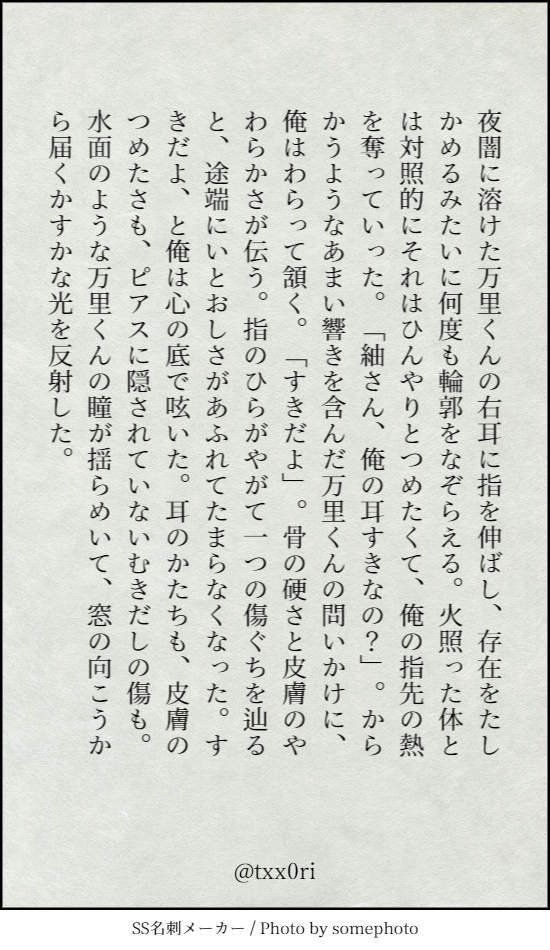 夜闇に溶けた万里くんの右耳に指を伸ばし、存在をたし
かめるみたいに何度も輪郭をなぞらえる。火照った体と
は対照的にそれはひんやりとつめたくて、俺の指先の熱
を奪っていった。「紬さん、俺の耳すきなの？」。から
かうようなあまい響きを含んだ万里くんの問いかけに、
俺はわらって頷く。「すきだよ」。骨の硬さと皮膚のや
わらかさが伝う。指のひらがやがて一つの傷ぐちを辿る
と、途端にいとおしさがあふれてたまらなくなった。す
きだよ、と俺は心の底で呟いた。耳のかたちも、皮膚の
つめたさも、ピアスに隠されていないむきだしの傷も。
水面のような万里くんの瞳が揺らめいて、窓の向こうか
ら届くかすかな光を反射した。
@txx0ri
SS名刺メーカー / Photo by somephoto